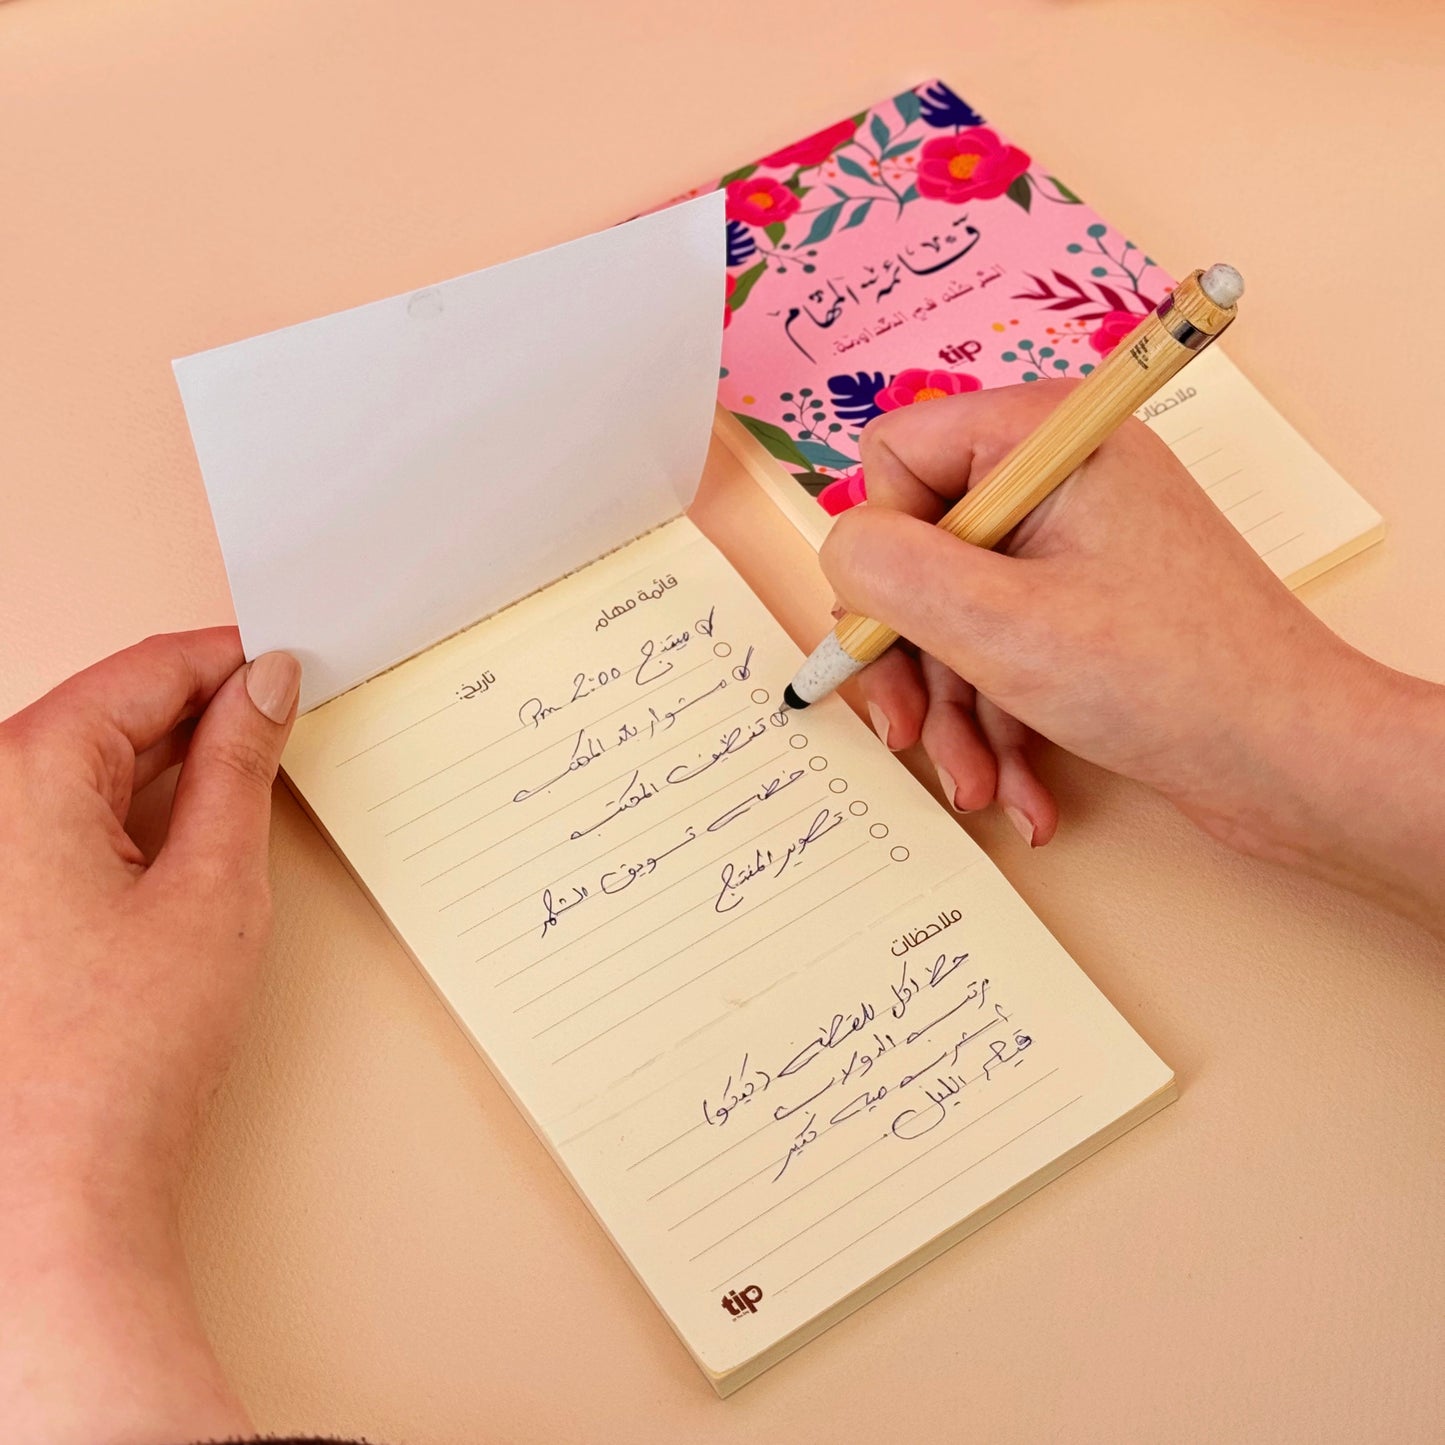 قائمة المهام
السر كله في التفاصيل.
tip
ملاحظات
قائمة مهام
تاريخ:
ميتنج 2:00 Pm
مشوار بعد المكتب
تنظيف المكتب
خطة تسويق الشهر
تطوير المنتج
ملاحظات
حط اكل للقطة (كيكو)
مرتب الدولاب
أشرب مية كتير
قيام الليل.
tip